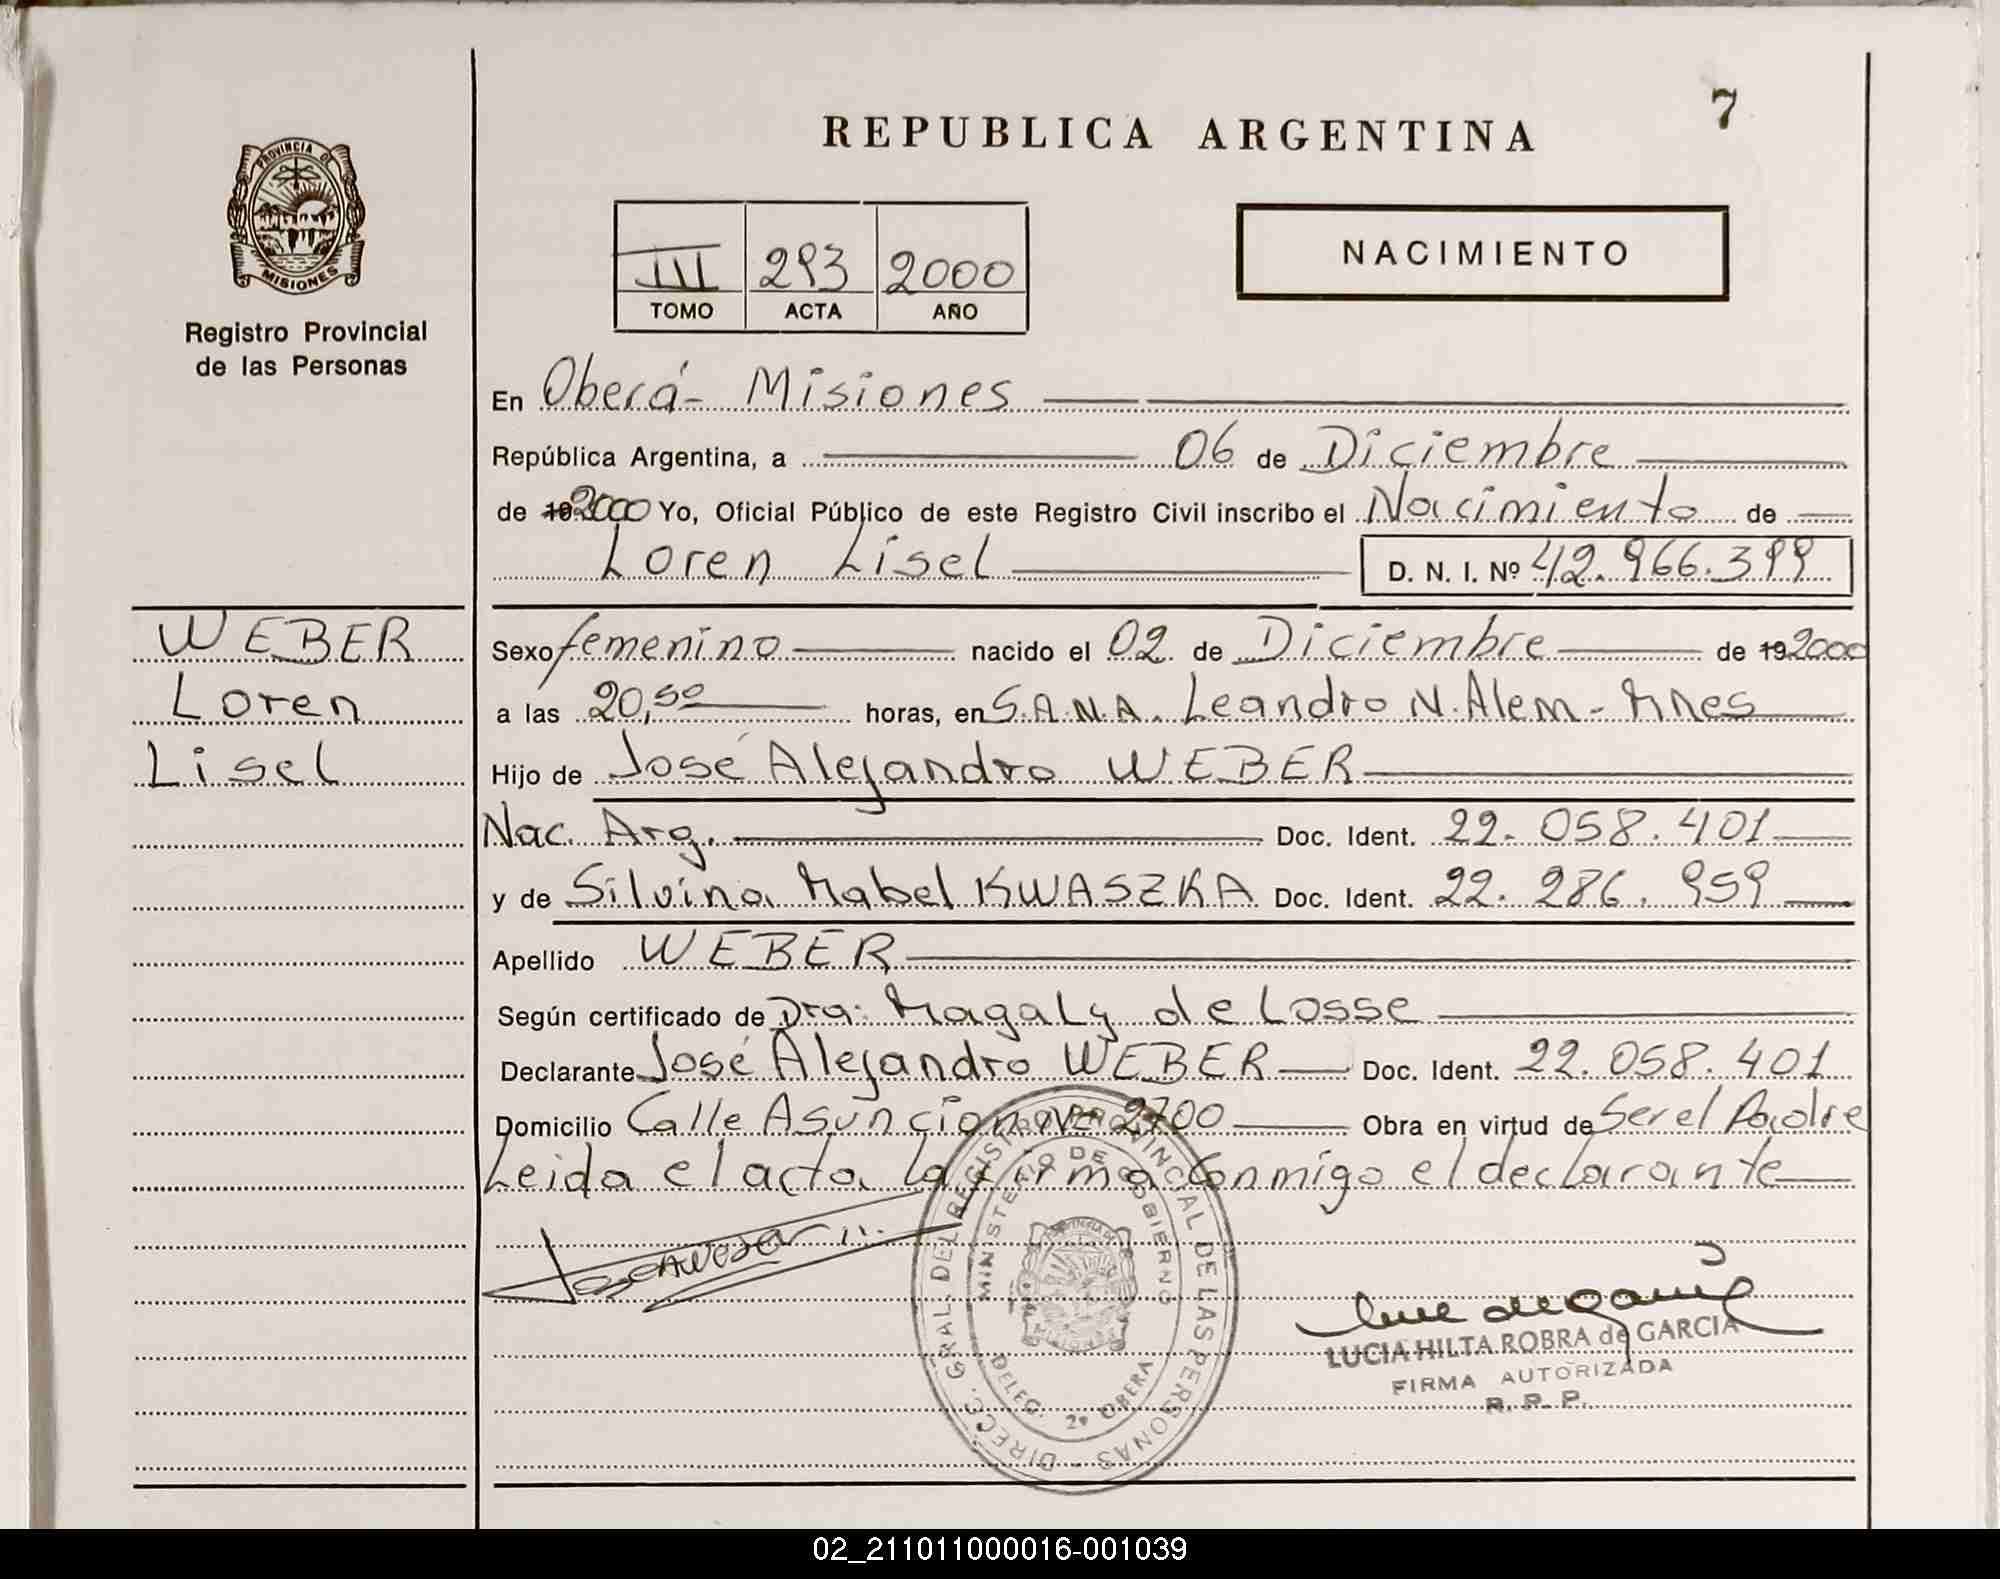 7
REPUBLICA ARGENTINA
PROVINCIA DE
MISIONES
Registro Provincial
de las Personas
III 293 2000
TOMO ACTA AÑO
NACIMIENTO
En Oberá - Misiones
República Argentina, a 06 de Diciembre
de 19 2000 Yo, Oficial Público de este Registro Civil inscribo el Nacimiento de
Loren Lisel D. N. I. Nº 42.966.399
WEBER
Loren
Lisel
Sexo femenino nacido el 02 de Diciembre de 19 2000
a las 20,50 horas, en S.A.N.A. Leandro N. Alem - Mnes
Hijo de José Alejandro WEBER
Nac. Arg. Doc. Ident. 22.058.401
y de Silvina Mabel KWASZKA Doc. Ident. 22.286.959
Apellido WEBER
Según certificado de Dra: Magaly de Losse
Declarante José Alejandro WEBER Doc. Ident. 22.058.401
Domicilio Calle Asunción Nº 2700 Obra en virtud de Ser el Padre
Leida el acta la firma conmigo el declarante
DIRECC. GRAL. DEL REGISTRO PROVINCIAL DE LAS PERSONAS
MINISTERIO DE GOBIERNO
DELEG. 2º OBERA
LUCIA HILTA ROBRA de GARCIA
FIRMA AUTORIZADA
R. P. P.
02_211011000016-001039